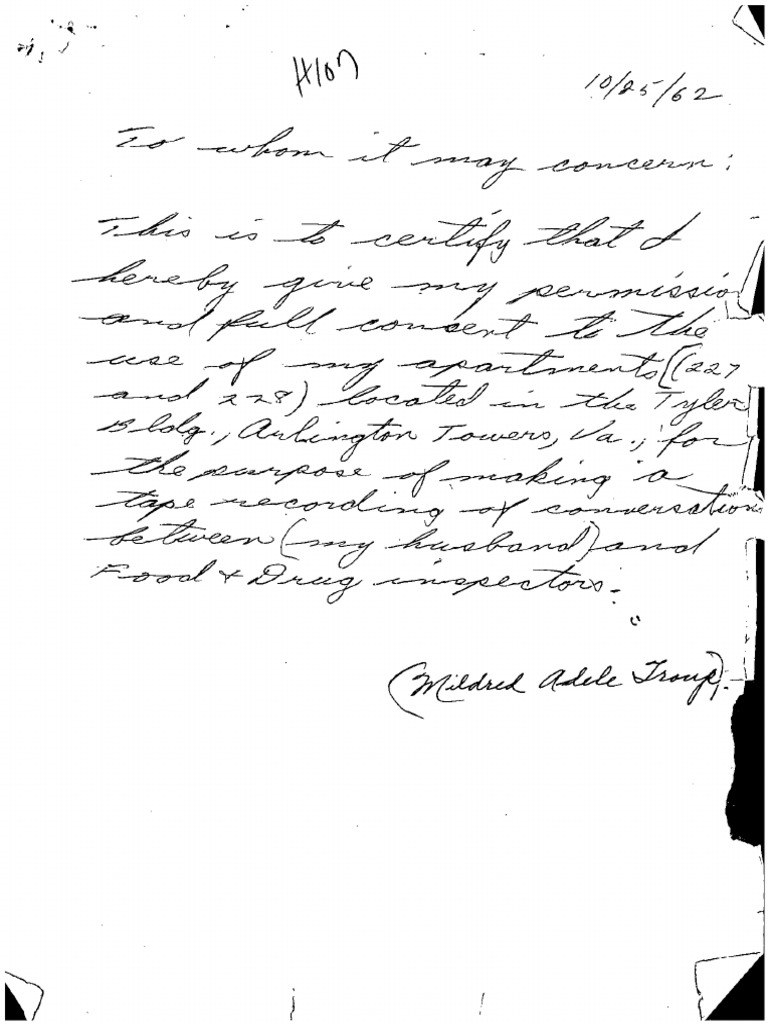 H107
10/25/62
To whom it may concern:
This is to certify that I
hereby give my permission
and full consent to the
use of my apartments [(227
and 228) located in the Tyler
Bldg., Arlington Towers, Va., for
the purpose of making a
tape recording of conversations
between (my husband) and
Food & Drug inspectors.
(Mildred Adele Troup).